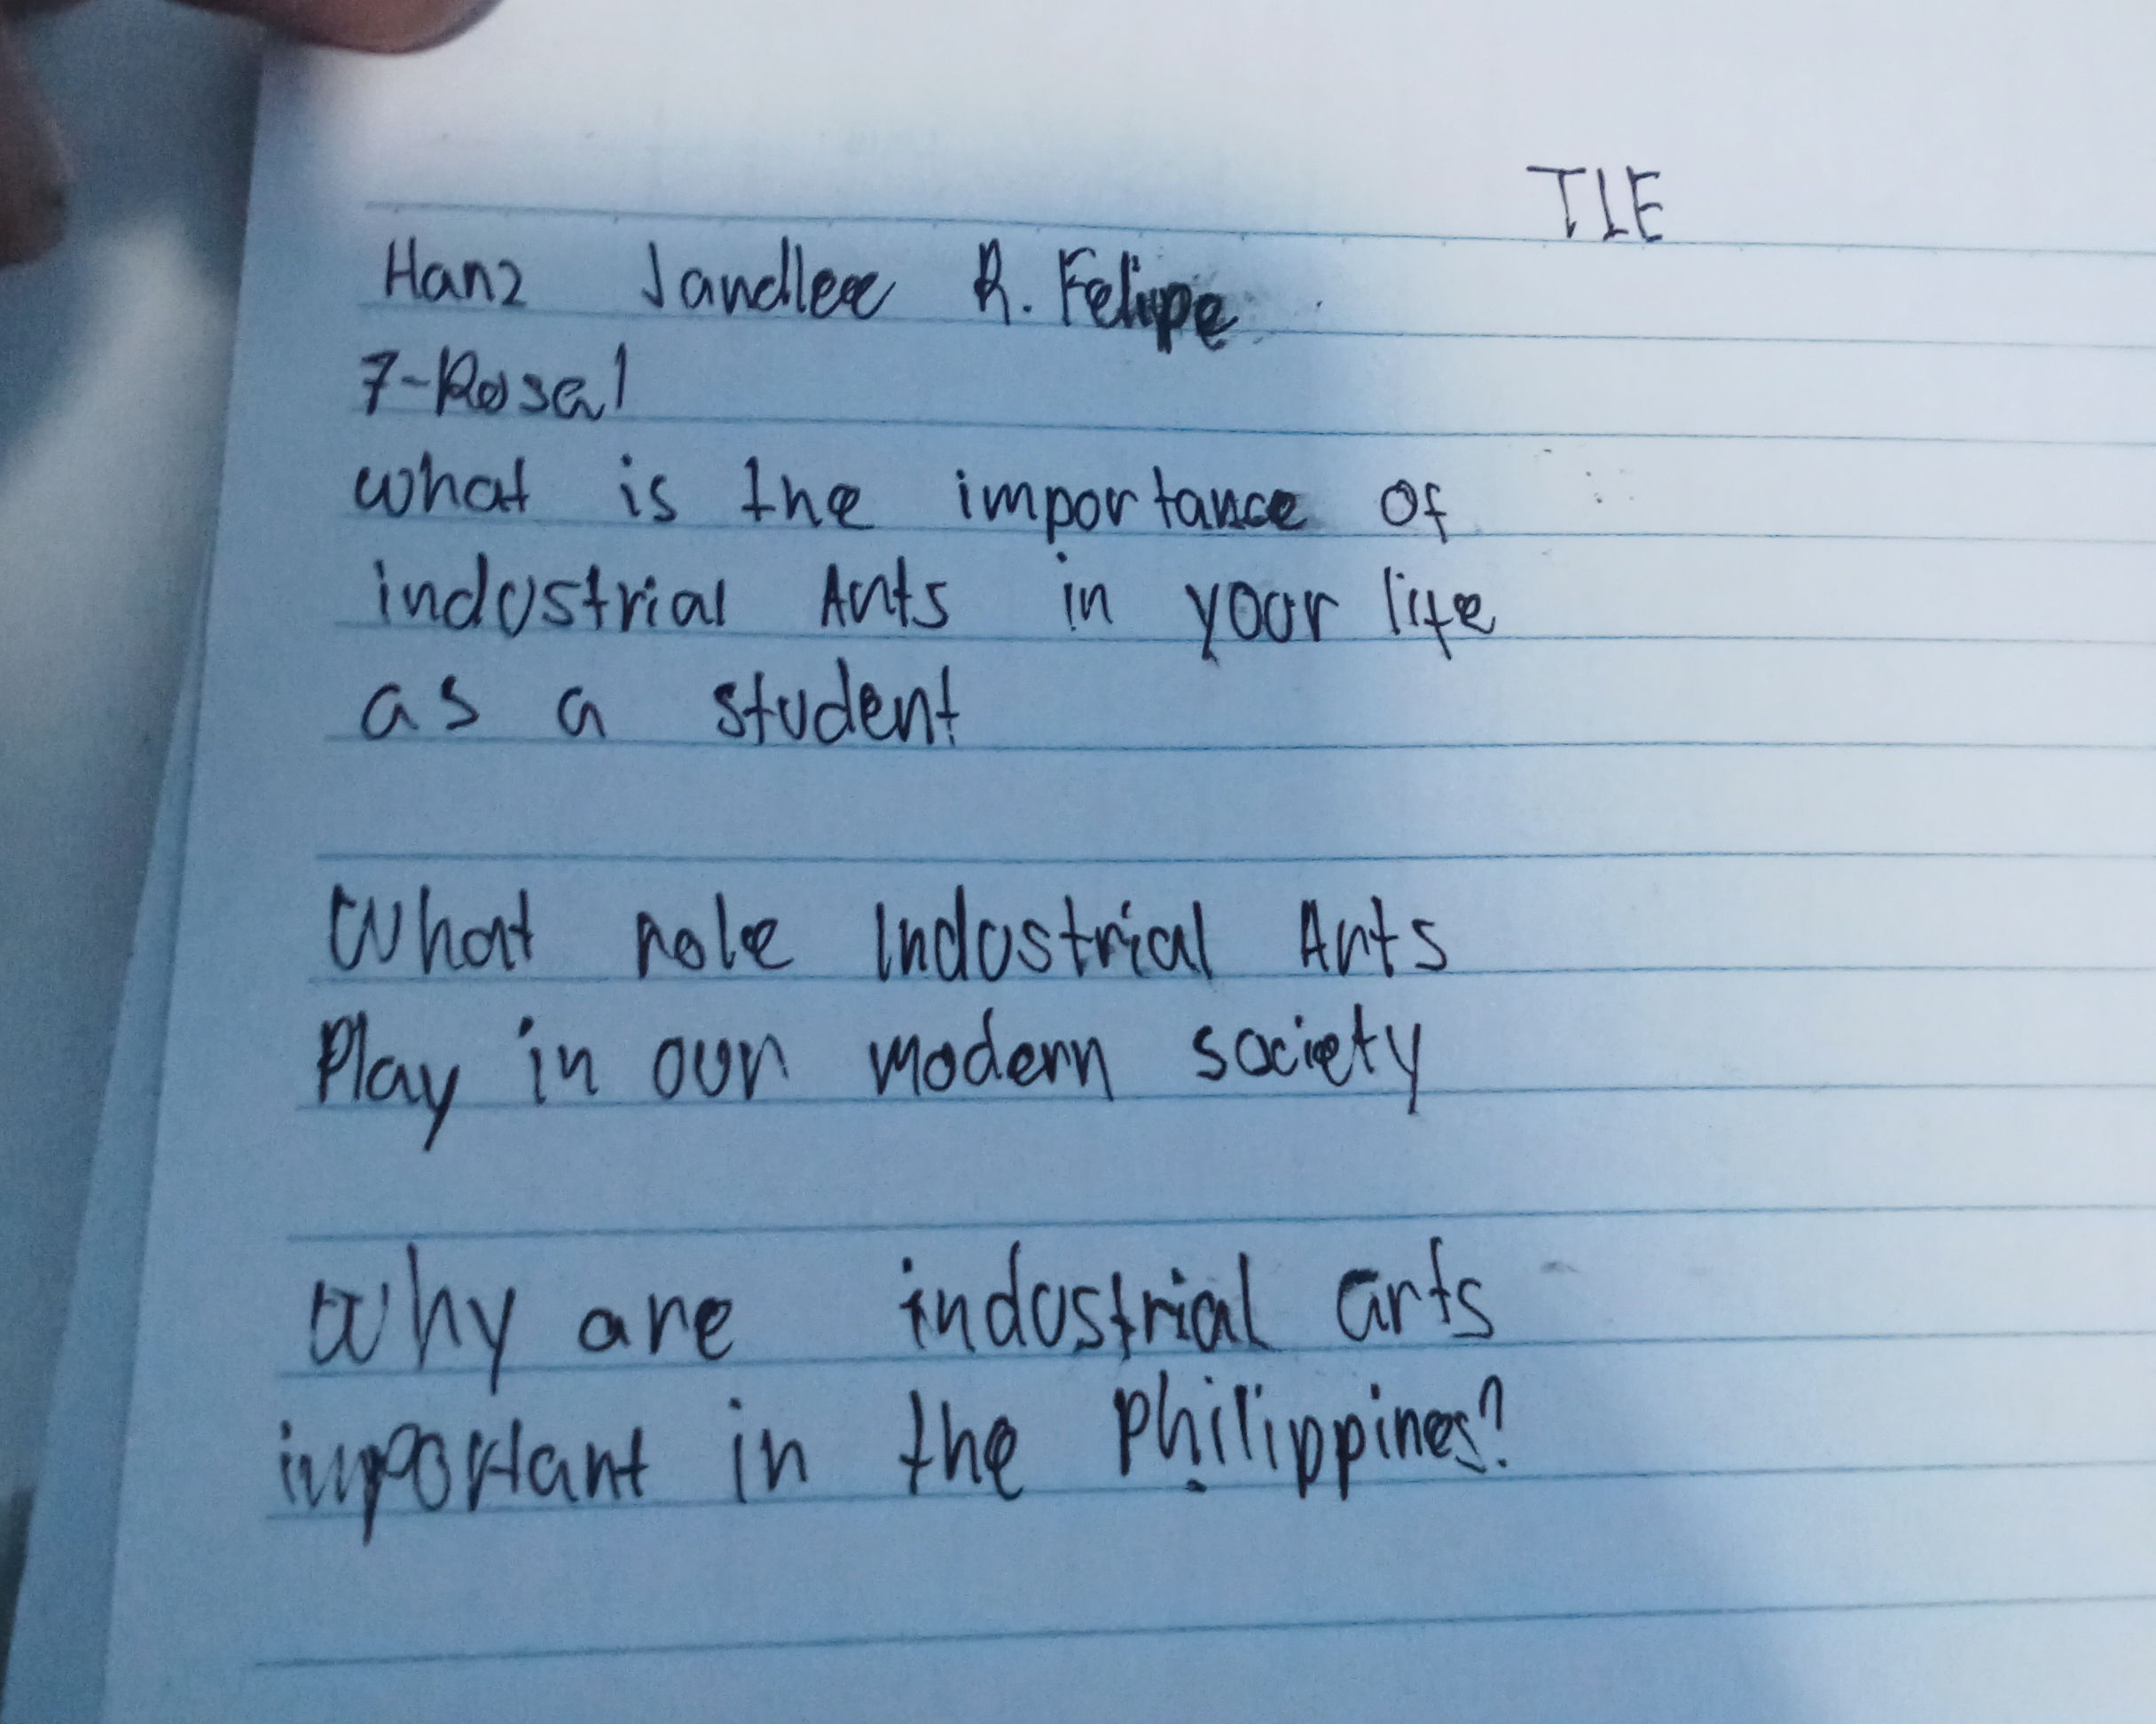 TLE
Hanz Jandlee R. Felipe
7-Rosal
what is the importance of
industrial Arts in your life
as a student
What role Industrial Arts
Play in our modern society
Why are industrial arts
important in the Philippines?